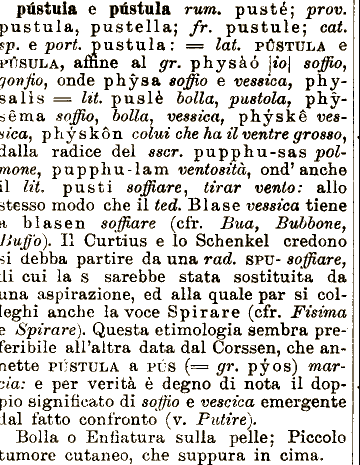 pústula e pústula rum. pusté; prov.
pustula, pustella; fr. pustule; cat.
sp. e port. pustula: = lat. PÚSTULA e
PÚSULA, affine al gr. physáô |io| soffio,
gonfio, onde phỳsa soffio e vessica, phy-
salis = lit. puslè bolla, pustola, phỳ-
sêma soffio, bolla, vessica, phỳskê ves-
sica, phỳskôn colui che ha il ventre grosso,
dalla radice del sscr. pupphu-sas pol-
mone, pupphu-lam ventosità, ond' anche
il lit. pusti soffiare, tirar vento: allo
stesso modo che il ted. Blase vessica tiene
a blasen soffiare (cfr. Bua, Bubbone,
Buffo). Il Curtius e lo Schenkel credono
si debba partire da una rad. SPU- soffiare,
di cui la s sarebbe stata sostituita da
una aspirazione, ed alla quale par si col-
leghi anche la voce Spirare (cfr. Fisima
e Spirare). Questa etimologia sembra pre-
feribile all'altra data dal Corssen, che an-
nette PÚSTULA a PUS (= gr. pỳos) mar-
cia: e per verità è degno di nota il dop-
pio significato di soffio e vescica emergente
dal fatto confronto (v. Putire).
Bolla o Enfiatura sulla pelle; Piccolo
tumore cutaneo, che suppura in cima.